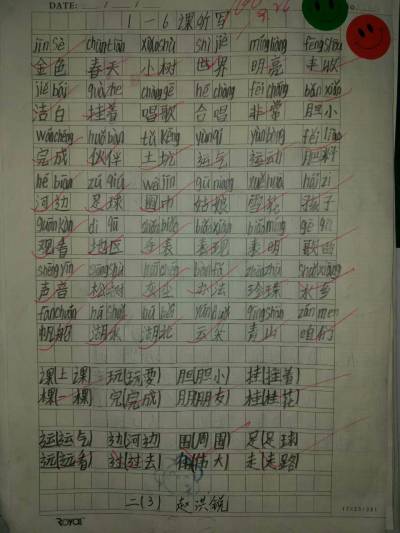 DATE:
1-6课听写
jīn sè chūn tiān xiǎo shù shì jiè míng liàng fēng shōu
金色 春天 小树 世界 明亮 丰收
jié bái guà zhe chàng gē hé chàng fēi cháng dǎn xiǎo
洁白 挂着 唱歌 合唱 非常 胆小
wán chéng huǒ bàn tǔ kēng yùn qì yùn dòng féi liào
完成 伙伴 土坑 运气 运动 肥料
hé biān zú qiú wéi jīn gū niang xuě huā hái zi
河边 足球 围巾 姑娘 雪花 孩子
guān kàn dì qū biǎo xiàn biǎo míng gē qǔ
观看 地区 手表 表现 表明 歌曲
shēng yīn sōng shù huī chén bàn fǎ zhēn zhū shuǐ xiāng
声音 松树 灰尘 办法 珍珠 水乡
fān chuán hú shuǐ hú běi yún jiān qīng shān zán men
帆船 湖水 湖北 云尖 青山 咱们
课(上课) 玩(玩耍) 胆(胆小) 挂(挂着)
棵(一棵) 完(完成) 朋(朋友) 桂(桂花)
运(运气) 边(河边) 围(周围) 足(足球)
远(远看) 过(过去) 伟(伟大) 走(走路)
二(3) 赵洪锐
ROYAL